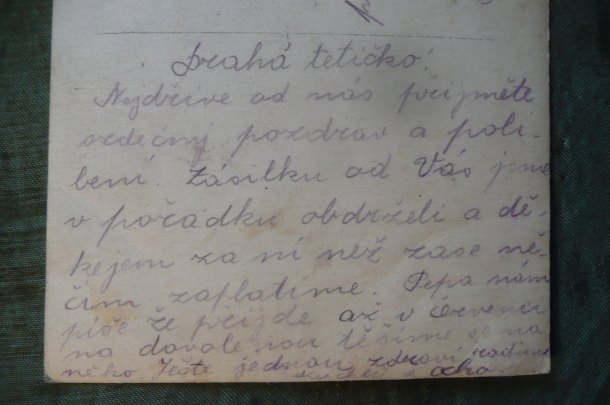 Drahá tetičko!
Nejdříve od nás přijměte
srdečný pozdrav a polí-
bení. Zásilku od Vás jsme
v pořádku obdrželi a dě-
kujem za ní než zase ně-
čím zaplatíme. Pepa nám
píše že přijde až v červenci
na dovolenou těšíme se na
něho. Ještě jednou zdraví